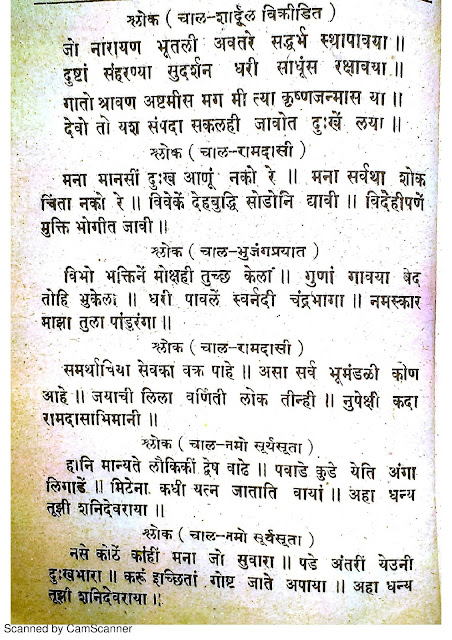 श्लोक ( चाल-शार्दूल विक्रीडित )
जो नारायण भूतली अवतरे सद्धर्भ स्थापावया ॥
दुष्टां संहरण्या सुदर्शन धरी साधूंस रक्षावया ॥
गातो श्रावण अष्टमीस मग मी त्या कृष्णजन्मास या ॥
देवो तो यश संपदा सकलही जावोत दुःखें लया ॥
श्लोक ( चाल-रामदासी )
मना मानसीं दुःख आणूं नको रे ॥ मना सर्वथा शोक
चिंता नको रे ॥ विवेकें देहबुद्धि सोडोनि द्यावी ॥ विदेहीपणें
मुक्ति भोगीत जावी ॥
श्लोक ( चाल-भुजंगप्रयात )
विभो भक्तिनें मोक्षही तुच्छ केला ॥ गुणां गावया वेद
तोहि भुकेला ॥ धरी पावलें स्वर्नदी चंद्रभागा ॥ नमस्कार
माझा तुला पांडुरंगा ॥
श्लोक ( चाल-रामदासी )
समर्थाचिया सेवका वक्र पाहे ॥ असा सर्व भूमंडळी कोण
आहे ॥ जयाची लिला वर्णिती लोक तीन्ही ॥ नुपेक्षी कदा
रामदासाभिमानी ॥
श्लोक ( चाल-नमो सूर्यसूता )
हानि मान्यते लौकिकीं द्वेष वाढे ॥ पवाडे कुडे येति अंगा
लिगाडें ॥ मिटेना कधी यत्न जाताति वायां ॥ अहा धन्य
तूझी शनिदेवराया ॥
श्लोक ( चाल-नमो सूर्यसूता )
नसे कोठें कांहीं मना जो सुवारा ॥ पडे अंतरीं येउनी
दुःखभारा ॥ करूं इच्छितां गोष्ट जाते अपाया ॥ अहा धन्य
तूझी शनिदेवराया ॥
Scanned by CamScanner